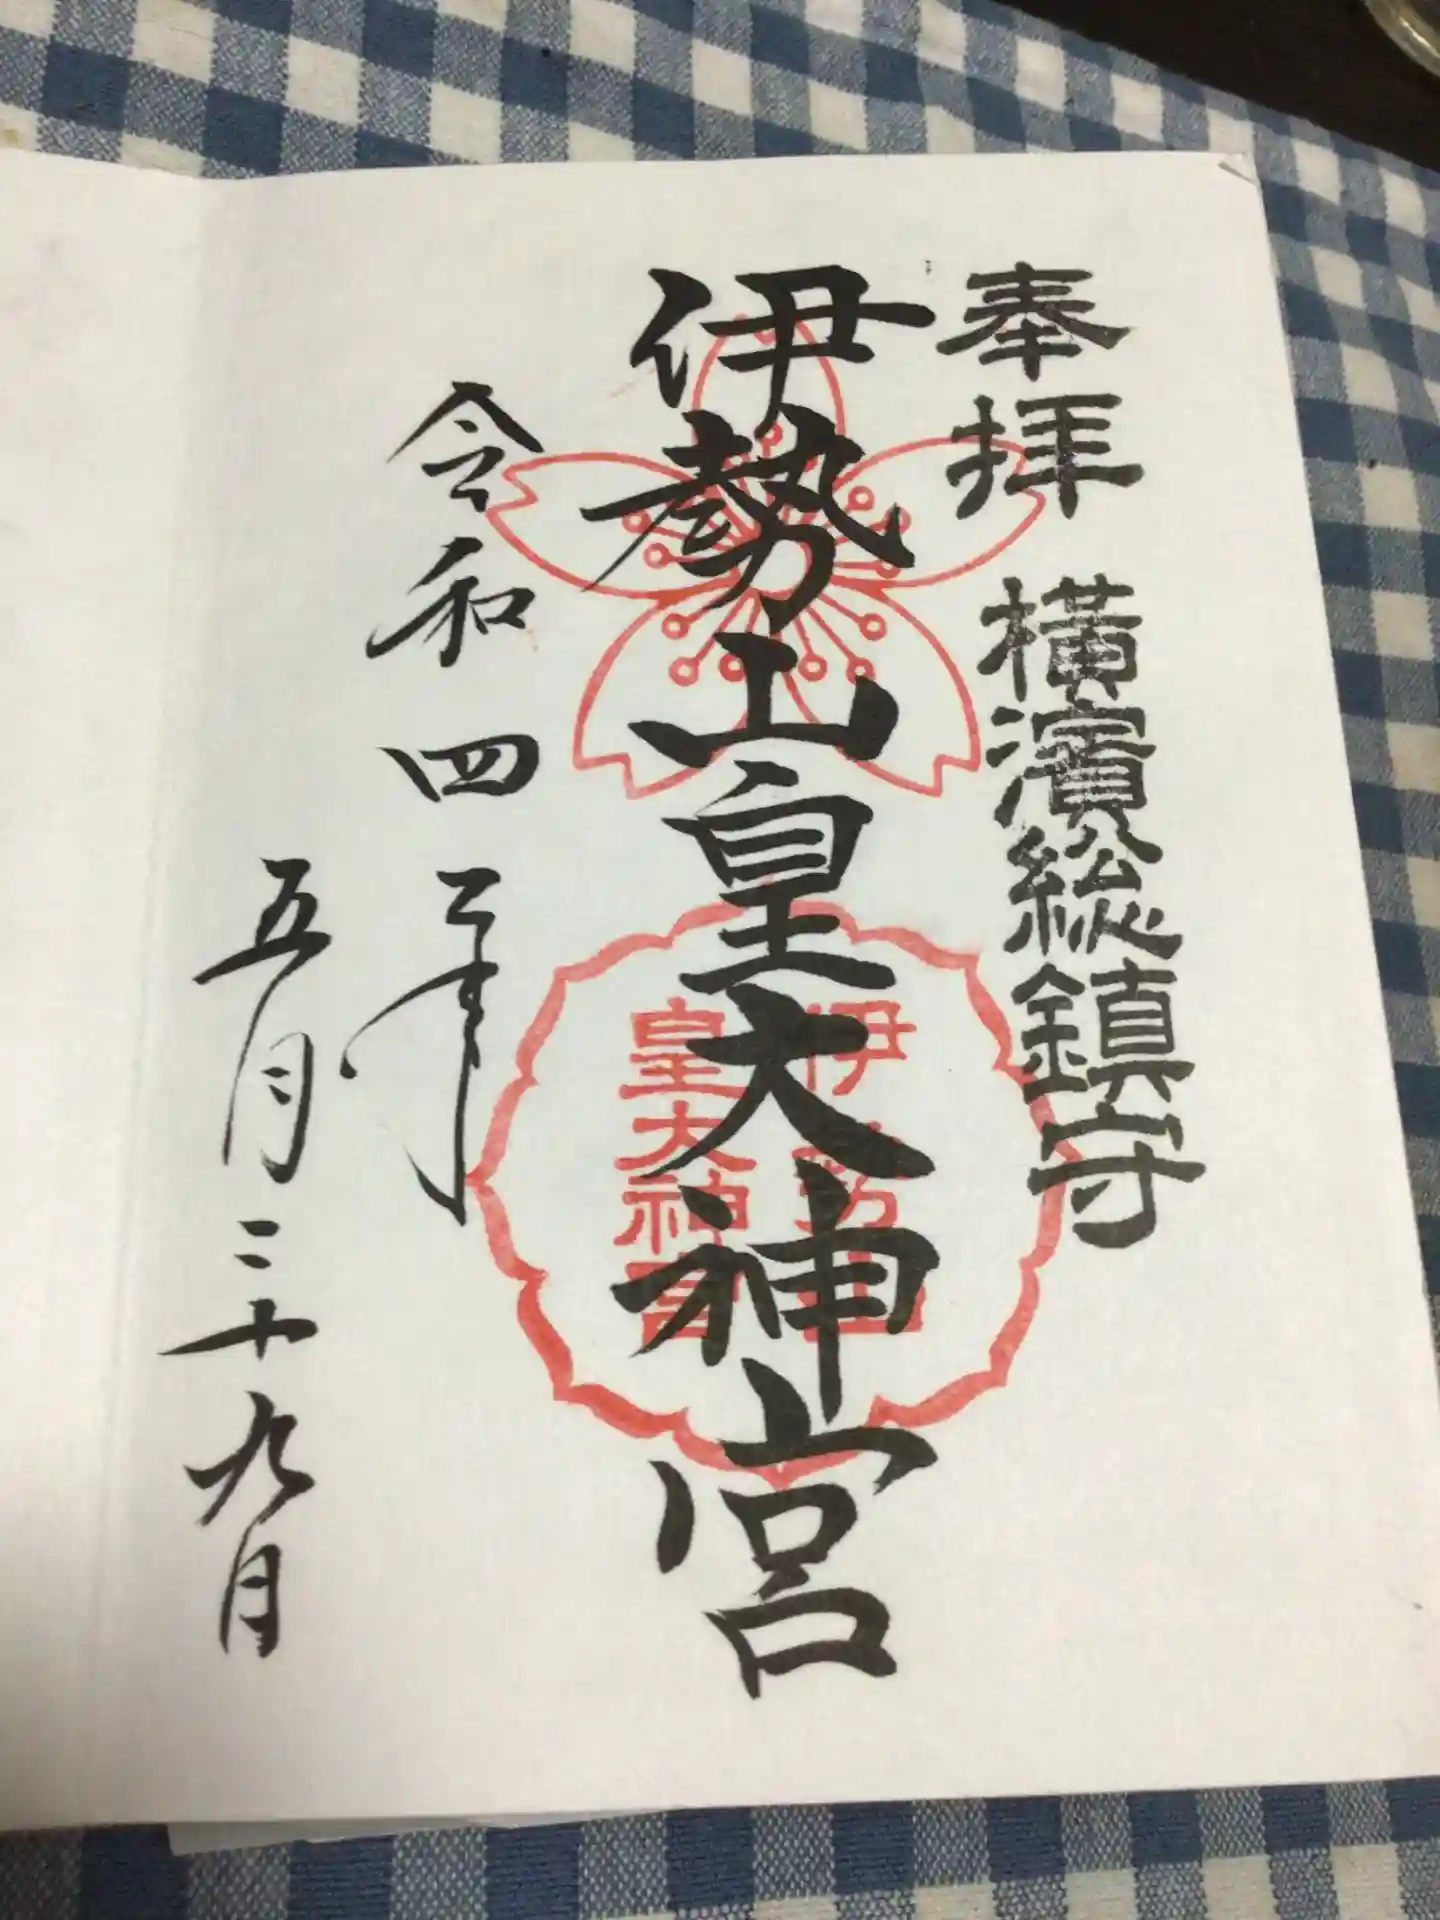 奉拝 横濱総鎮守
伊勢山皇大神宮
伊勢山
皇大神宮
令和四年
五月二十九日